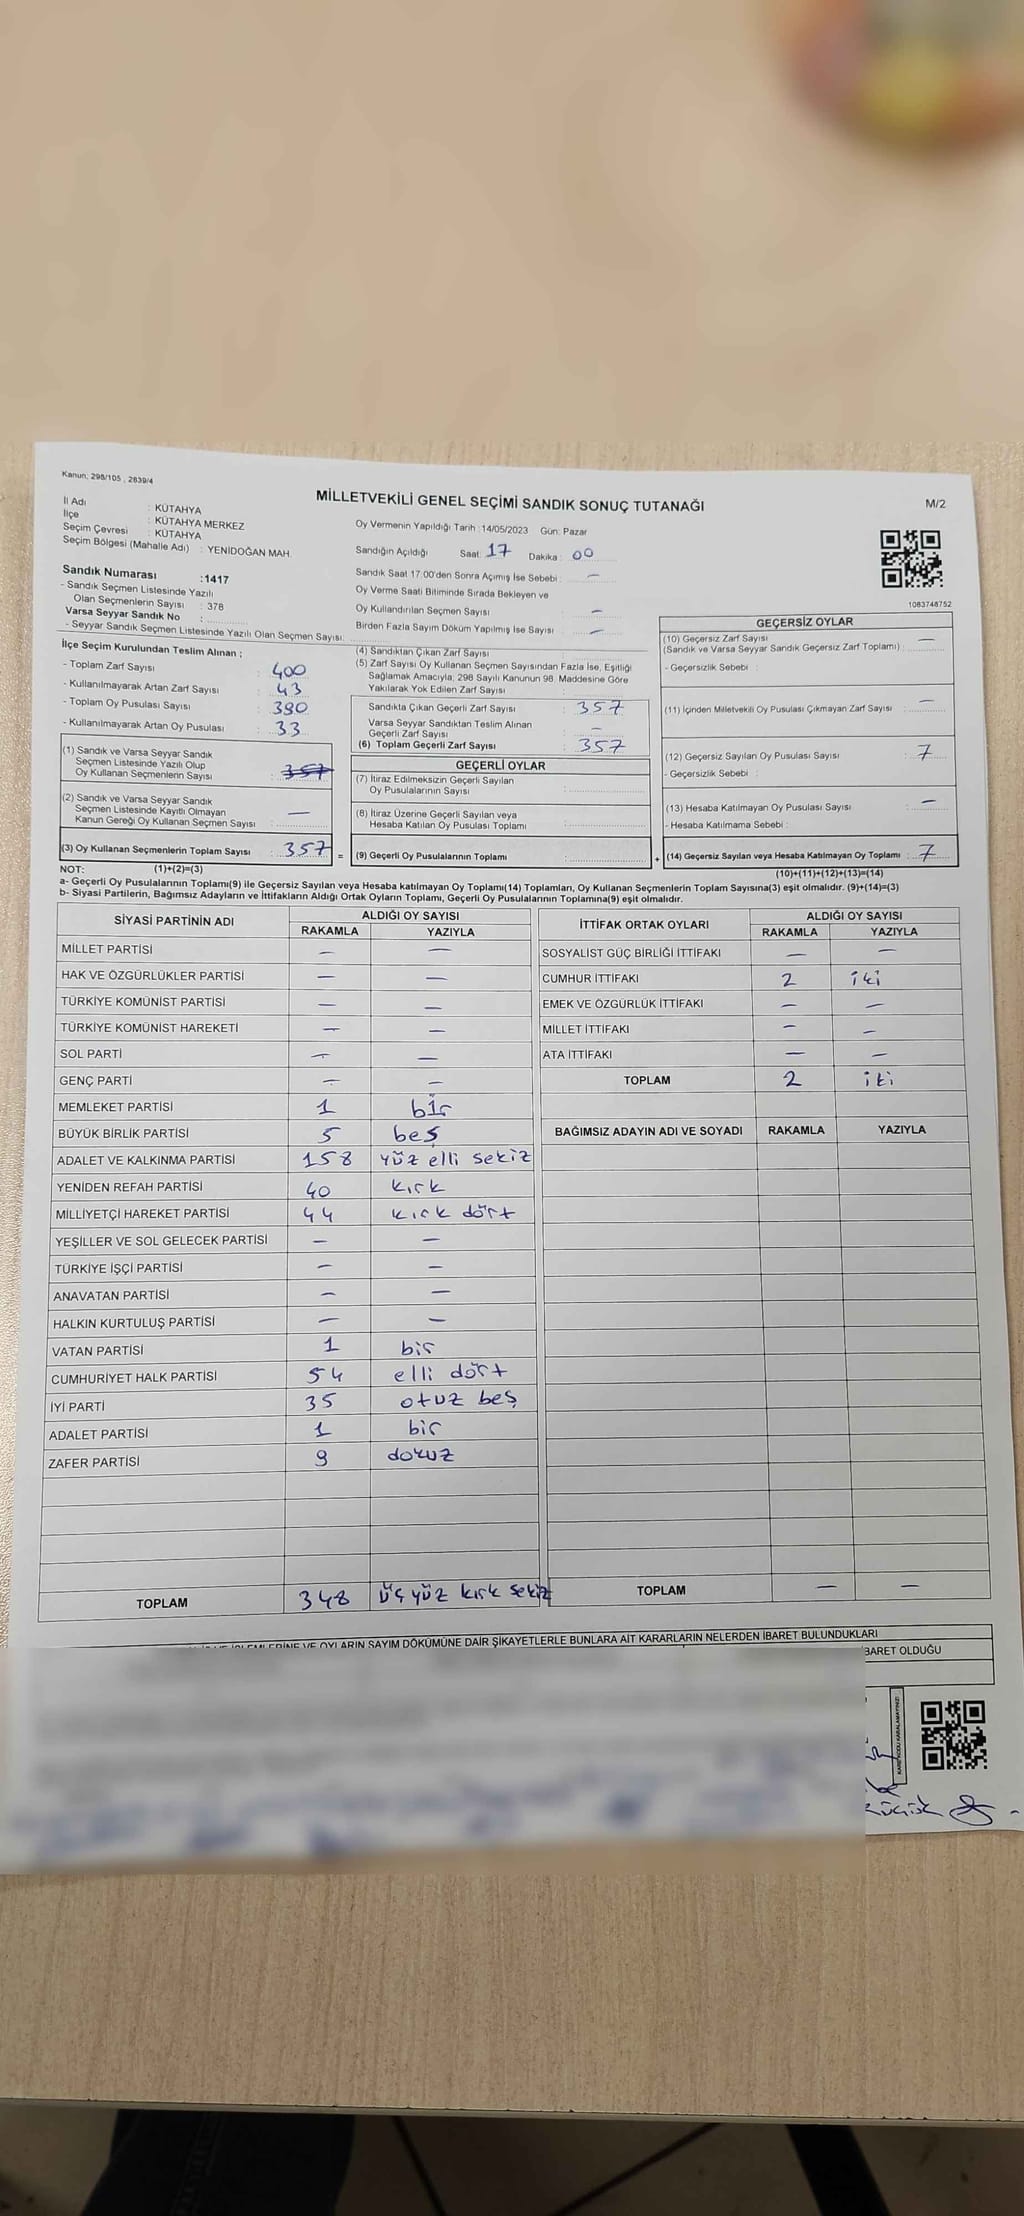 Kanun; 298/105 , 2839/4
MİLLETVEKİLİ GENEL SEÇİMİ SANDIK SONUÇ TUTANAĞI
M/2
İl Adı : KÜTAHYA
İlçe : KÜTAHYA MERKEZ
Seçim Çevresi : KÜTAHYA
Seçim Bölgesi (Mahalle Adı) : YENİDOĞAN MAH.
Sandık Numarası :1417
- Sandık Seçmen Listesinde Yazılı
Olan Seçmenlerin Sayısı : 378
Varsa Seyyar Sandık No :
- Seyyar Sandık Seçmen Listesinde Yazılı Olan Seçmen Sayısı:
Oy Vermenin Yapıldığı Tarih :14/05/2023 Gün: Pazar
Sandığın Açıldığı Saat: 17 Dakika : 00
Sandık Saat 17:00'den Sonra Açımış İse Sebebi : —
Oy Verme Saati Bitiminde Sırada Bekleyen ve
Oy Kullandırılan Seçmen Sayısı : —
Birden Fazla Sayım Döküm Yapılmış İse Sayısı : —
1083748752
İlçe Seçim Kurulundan Teslim Alınan ;
- Toplam Zarf Sayısı : 400
- Kullanılmayarak Artan Zarf Sayısı : 43
- Toplam Oy Pusulası Sayısı : 390
- Kullanılmayarak Artan Oy Pusulası : 33
(1) Sandık ve Varsa Seyyar Sandık
Seçmen Listesinde Yazılı Olup
Oy Kullanan Seçmenlerin Sayısı : 357
(2) Sandık ve Varsa Seyyar Sandık
Seçmen Listesinde Kayıtlı Olmayan
Kanun Gereği Oy Kullanan Seçmen Sayısı : —
(3) Oy Kullanan Seçmenlerin Toplam Sayısı : 357 =
(4) Sandıktan Çıkan Zarf Sayısı :
(5) Zarf Sayısı Oy Kullanan Seçmen Sayısından Fazla İse, Eşitliği
Sağlamak Amacıyla; 298 Sayılı Kanunun 98. Maddesine Göre
Yakılarak Yok Edilen Zarf Sayısı :
Sandıkta Çıkan Geçerli Zarf Sayısı : 357
Varsa Seyyar Sandıktan Teslim Alınan
Geçerli Zarf Sayısı : —
(6) Toplam Geçerli Zarf Sayısı : 357
GEÇERLİ OYLAR
(7) İtiraz Edilmeksizin Geçerli Sayılan
Oy Pusulalarının Sayısı :
(8) İtiraz Üzerine Geçerli Sayılan veya
Hesaba Katılan Oy Pusulası Toplamı :
(9) Geçerli Oy Pusulalarının Toplamı : +
GEÇERSİZ OYLAR
(10) Geçersiz Zarf Sayısı —
(Sandık ve Varsa Seyyar Sandık Geçersiz Zarf Toplamı) :
- Geçersizlik Sebebi :
(11) İçinden Milletvekili Oy Pusulası Çıkmayan Zarf Sayısı : —
(12) Geçersiz Sayılan Oy Pusulası Sayısı : 7
- Geçersizlik Sebebi :
(13) Hesaba Katılmayan Oy Pusulası Sayısı : —
- Hesaba Katılmama Sebebi :
(14) Geçersiz Sayılan veya Hesaba Katılmayan Oy Toplamı : 7
NOT: (1)+(2)=(3)
(10)+(11)+(12)+(13)=(14)
a- Geçerli Oy Pusulalarının Toplamı(9) ile Geçersiz Sayılan veya Hesaba katılmayan Oy Toplamı(14) Toplamları, Oy Kullanan Seçmenlerin Toplam Sayısına(3) eşit olmalıdır. (9)+(14)=(3)
b- Siyasi Partilerin, Bağımsız Adayların ve İttifakların Aldığı Ortak Oyların Toplamı, Geçerli Oy Pusulalarının Toplamına(9) eşit olmalıdır.
SİYASİ PARTİNİN ADI ALDIĞI OY SAYISI
RAKAMLA YAZIYLA
MİLLET PARTİSİ — —
HAK VE ÖZGÜRLÜKLER PARTİSİ — —
TÜRKİYE KOMÜNİST PARTİSİ — —
TÜRKİYE KOMÜNİST HAREKETİ — —
SOL PARTİ — —
GENÇ PARTİ — —
MEMLEKET PARTİSİ 1 bir
BÜYÜK BİRLİK PARTİSİ 5 beş
ADALET VE KALKINMA PARTİSİ 158 yüz elli sekiz
YENİDEN REFAH PARTİSİ 40 kırk
MİLLİYETÇİ HAREKET PARTİSİ 44 kırk dört
YEŞİLLER VE SOL GELECEK PARTİSİ — —
TÜRKİYE İŞÇİ PARTİSİ — —
ANAVATAN PARTİSİ — —
HALKIN KURTULUŞ PARTİSİ — —
VATAN PARTİSİ 1 bir
CUMHURİYET HALK PARTİSİ 54 elli dört
İYİ PARTİ 35 otuz beş
ADALET PARTİSİ 1 bir
ZAFER PARTİSİ 9 dokuz
TOPLAM 348 üç yüz kırk sekiz
İTTİFAK ORTAK OYLARI ALDIĞI OY SAYISI
RAKAMLA YAZIYLA
SOSYALİST GÜÇ BİRLİĞİ İTTİFAKI — —
CUMHUR İTTİFAKI 2 iki
EMEK VE ÖZGÜRLÜK İTTİFAKI — —
MİLLET İTTİFAKI — —
ATA İTTİFAKI — —
TOPLAM 2 iki
BAĞIMSIZ ADAYIN ADI VE SOYADI RAKAMLA YAZIYLA
TOPLAM — —
İŞLEMLERİNE VE OYLARIN SAYIM DÖKÜMÜNE DAİR ŞİKAYETLERLE BUNLARA AİT KARARLARIN NELERDEN İBARET BULUNDUKLARI
BARET OLDUĞU
KARE KODU KARALAMAYINIZ!